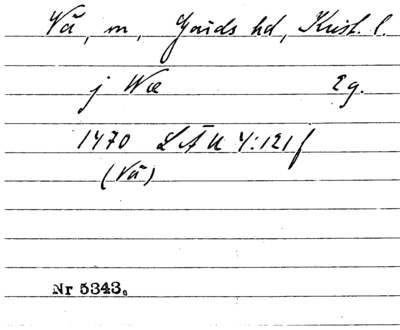 Vä, m, Gärds hd, Krist. l.
j Wæ 2g.
1470 LÄU 4:121f
(Vä)
Nr 5343.